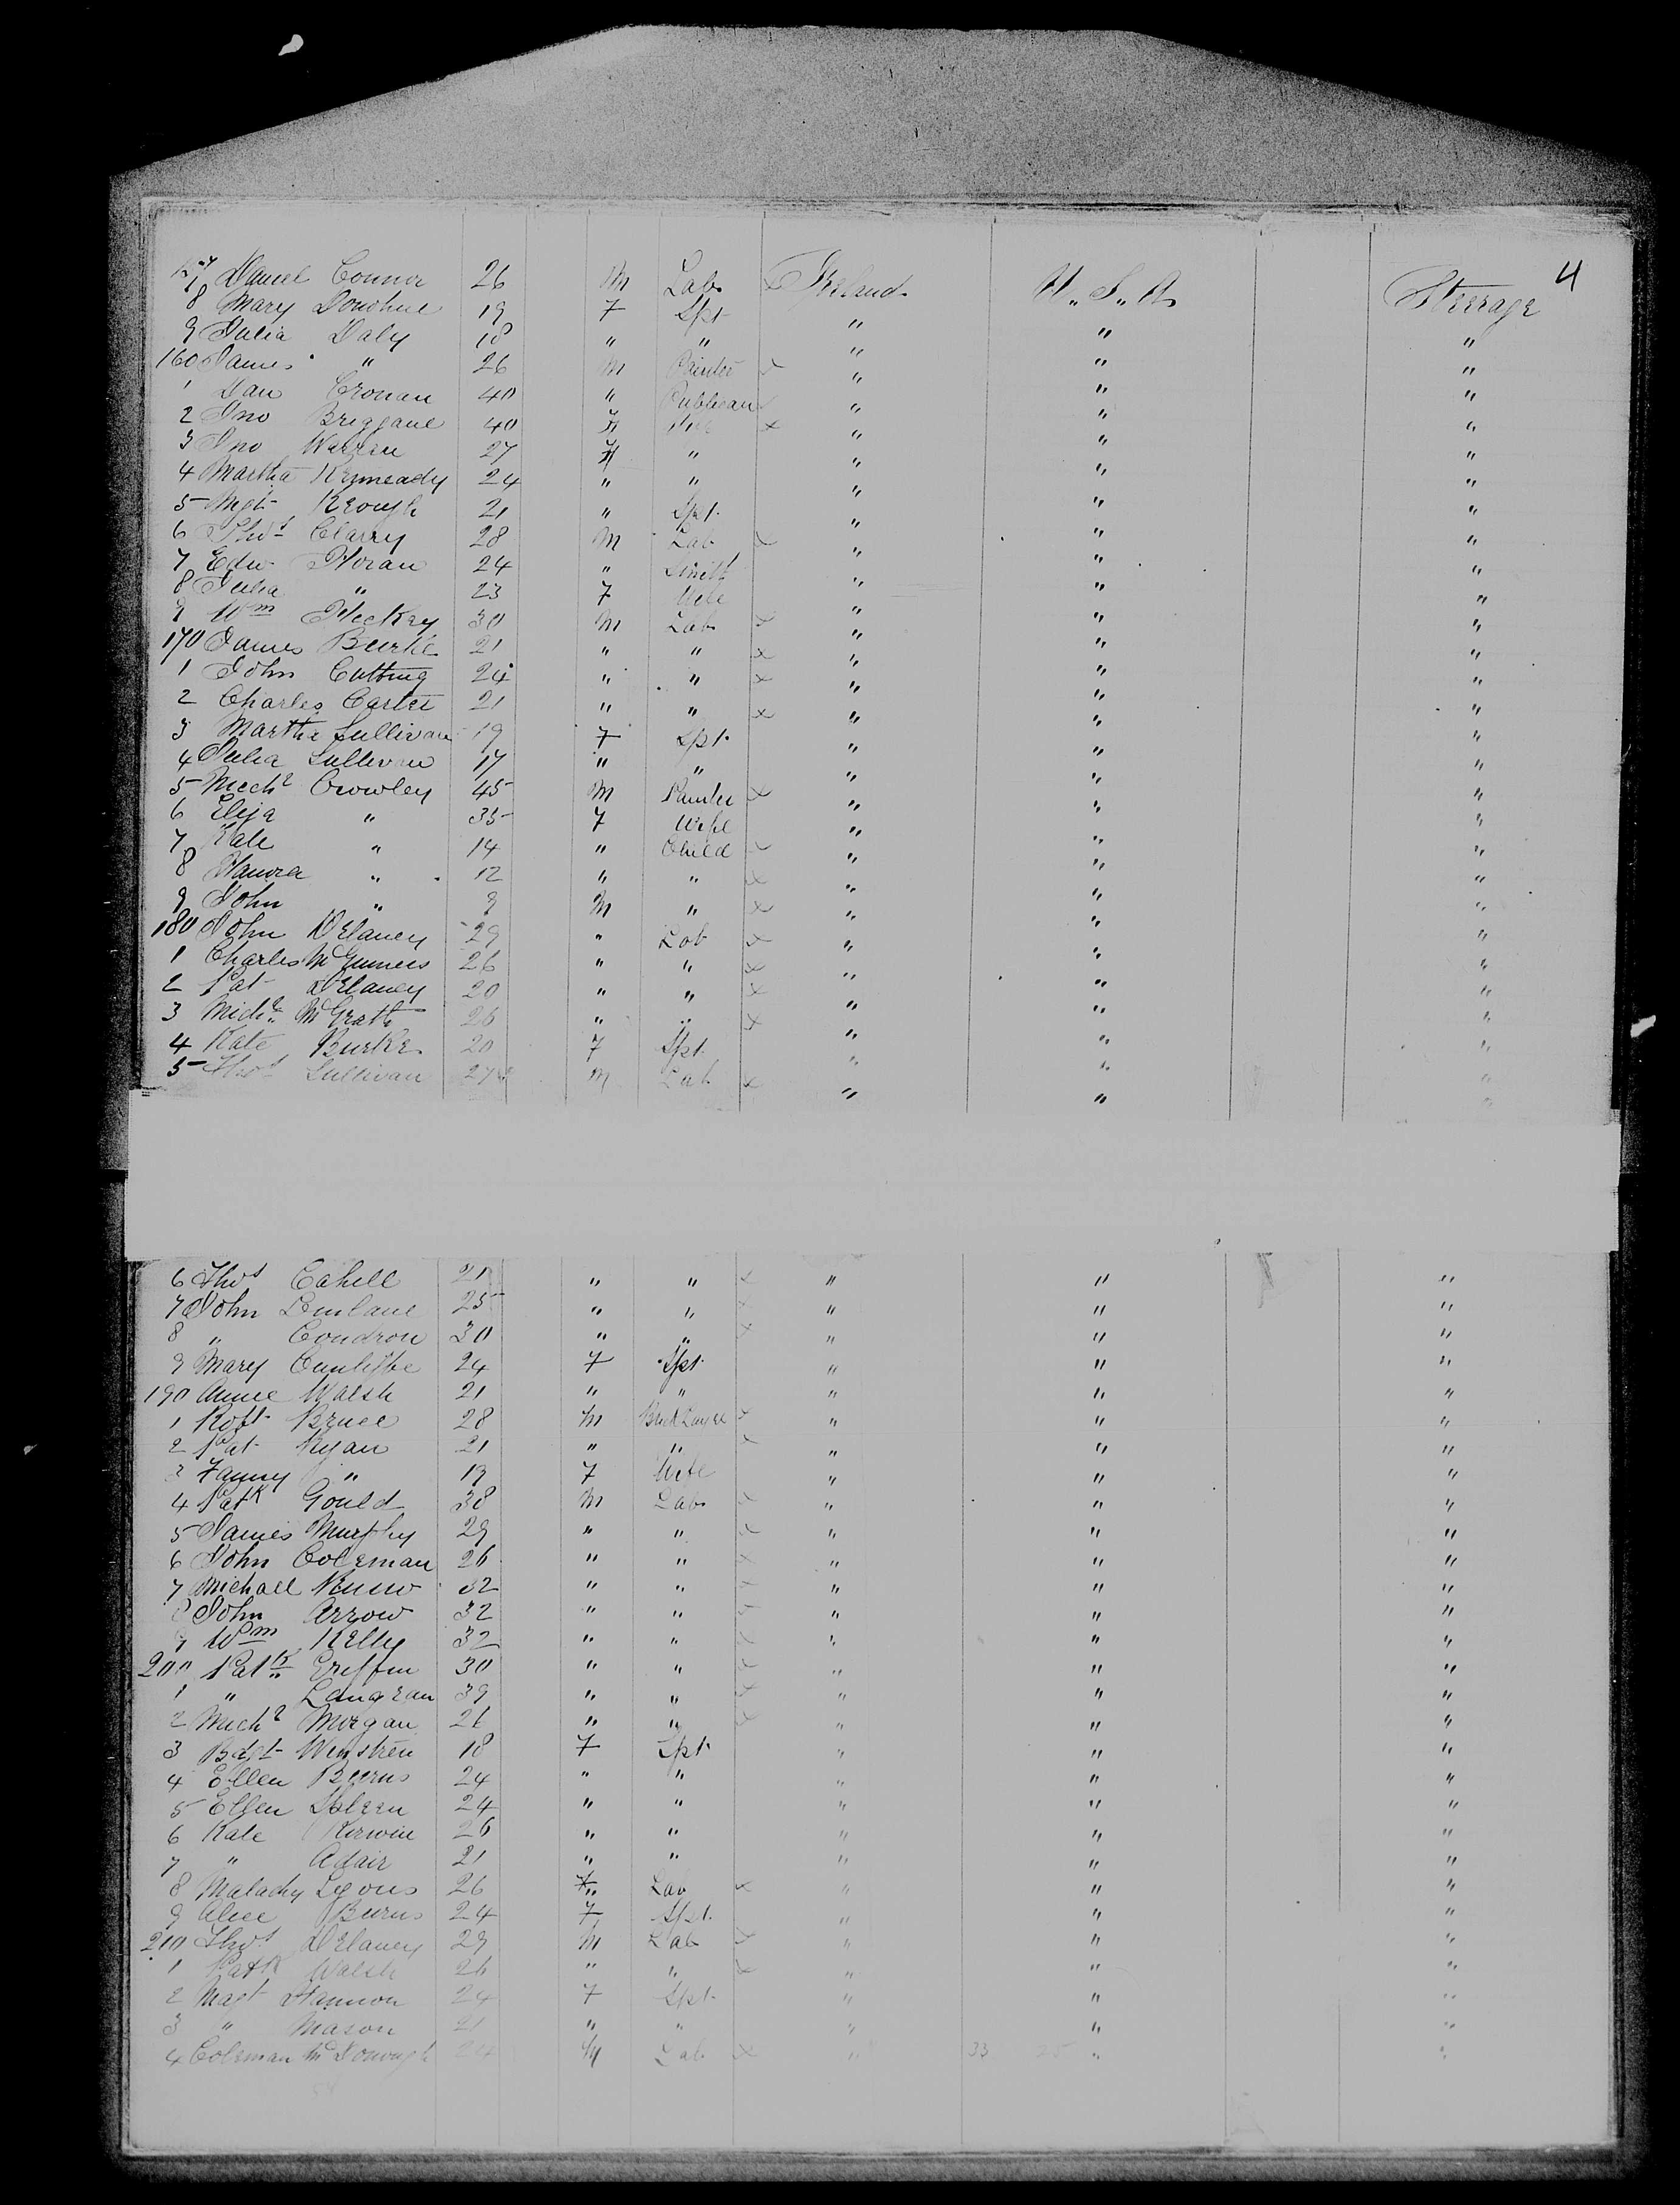 4
157 Daniel Connor 26 M Lab x Ireland U. S. A. Steerage
8 Mary Donohue 19 F Spt " " "
9 Julia Daly 18 " " " " "
160 James " 26 M Painter x " " "
1 Dan Cronan 40 " Publican " " "
2 Jno Briggane 40 x " " "
3 Jno Warren 27 " " " "
4 Martha Kenneady 24 " " " " "
5 Mgt Keough 21 " Spt " " "
6 Thos Clarry 28 M Lab x " " "
7 Edw Horan 24 " Smith " " "
8 Julia " 23 F Wife " " "
9 Wm Hickey 30 M Lab x " " "
170 James Burke 21 " " x " " "
1 John Cutting 24 " " x " " "
2 Charles Carter 21 " " x " " "
3 Martha Sullivan 19 F Spt " " "
4 Julia Sullivan 17 " " " " "
5 Michl Crowley 45 M Painter x " " "
6 Eliza " 35 F Wife " " "
7 Kate " 14 " Child x " " "
8 Hanora " 12 " " x " " "
9 John " 9 M " x " " "
180 John Delaney 29 " Lab x " " "
1 Charles 26 " " x " " "
2 Pat Delaney 20 " " x " " "
3 Michl McGrath 26 " " x " " "
4 Kate Burke 20 F Spt " " "
5 Thos Sullivan 27 M Lab x " " "
6 Thos Cahill 21 " " x " " "
7 John 25 " " x " " "
8 " Condron 30 " " x " " "
9 Mary Cunliffe 24 F Spt " " "
190 Annie Walsh 21 " " " " "
1 Robt Bruce 28 M Bricklayer x " " "
2 Pat Ryan 21 " " x " " "
3 Fanny " 19 F Wife " " "
4 Patk Gould 38 M Lab x " " "
5 James Murphy 29 " " x " " "
6 John Coleman 26 " " x " " "
7 Michael 32 " " x " " "
8 John Arrow 32 " " x " " "
9 Wm Kelly 32 " " x " " "
200 Patk Griffin 30 " " x " " "
1 " Langran 39 " " x " " "
2 Michl Morgan 26 " " x " " "
3 Bdgt 18 F Spt " " "
4 Ellen Burns 24 " " " " "
5 Ellen 24 " " " " "
6 Kate Kerwin 26 " " " " "
7 " Adair 21 " " " " "
8 Malachy Lyons 26 " Lab x " " "
9 Alice Burns 24 F Spt " " "
210 Thos Delaney 29 M Lab x " " "
1 Patk Walsh 26 " " x " " "
2 Magt Hannon 24 F Spt " " "
3 " Mason 21 " " " " "
4 Coleman McDonough 24 M Lab x " 33 25 " "